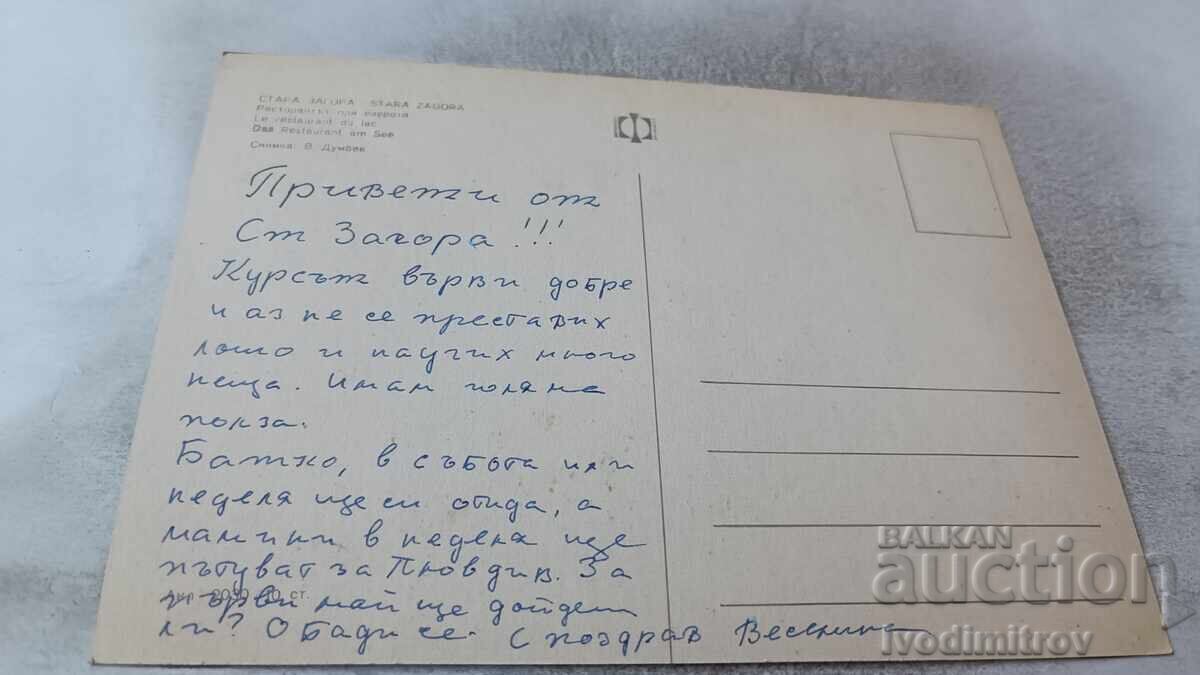 СТАРА ЗАГОРА STARA ZAGORA
Ресторантът при езерото
Le restaurant du lac
Das Restaurant am See
Снимка: В. Думбев
Привети от
Ст Загора!!!
Курсът върви добре
и аз не се преставих
лошо и научих много
неща. Имам голяма
полза.
Батко, в събота или
неделя ще си отида, а
мамини в неделя ще
пътуват за Пловдив. За
първи май ще дойдеш
ли? Обади се. С поздрав
ст.
BALKAN
auction
ivodimitrov